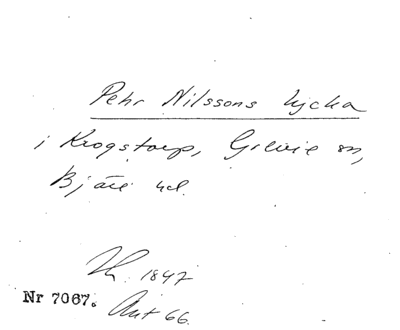 Pehr Nilssons lycka
i Krogstorp, Grevie sn,
Bjäre hd.
1847
Nr 7067. Ant 66.